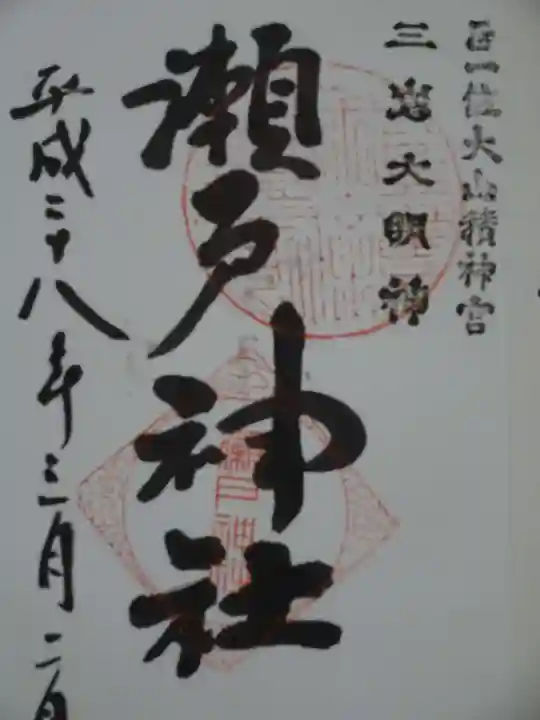 正一位大山積神宮
三島大明神
瀬戸神社
平成二十八年三月二日
瀬戸神社